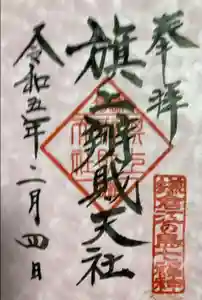 奉拝
旗上辨財天社
令和五年二月四日
鎌倉江の島七福神